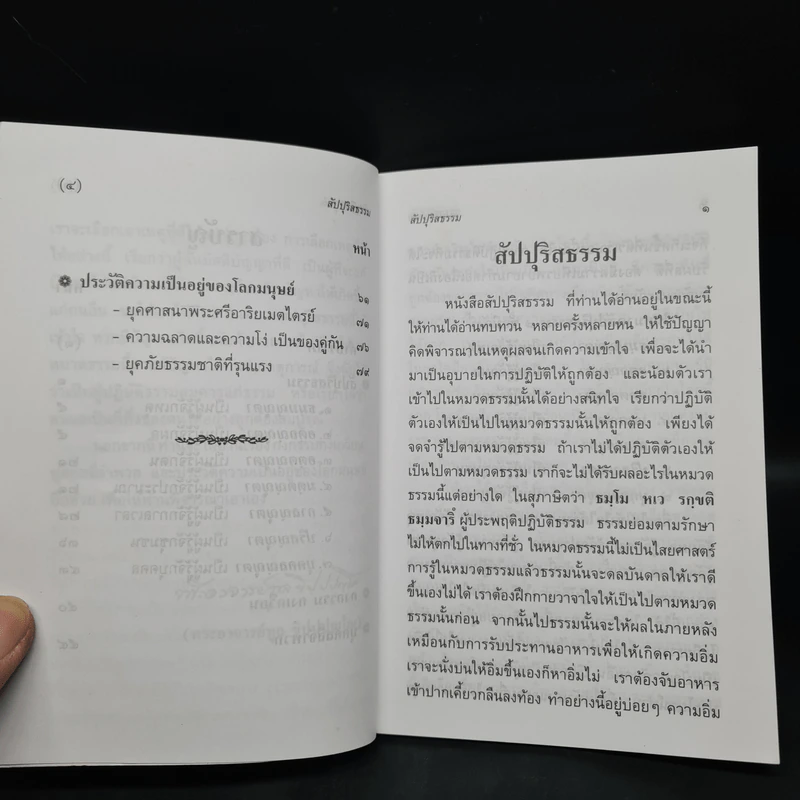 (๔)
สัปปุริสธรรม
หน้า
ประวัติความเป็นอยู่ของโลกมนุษย์ ๖๑
- ยุคศาสนาพระศรีอาริยเมตไตรย์ ๗๑
- ความฉลาดและความโง่ เป็นของคู่กัน ๗๖
- ยุคภัยธรรมชาติที่รุนแรง ๗๙
สัปปุริสธรรม ๑
สัปปุริสธรรม
หนังสือสัปปุริสธรรม ที่ท่านได้อ่านอยู่ในขณะนี้
ให้ท่านได้อ่านทบทวน หลายครั้งหลายหน ให้ใช้ปัญญา
คิดพิจารณาในเหตุผลจนเกิดความเข้าใจ เพื่อจะได้นำ
มาเป็นอุบายในการปฏิบัติให้ถูกต้อง และน้อมตัวเรา
เข้าไปในหมวดธรรมนั้นได้อย่างสนิทใจ เรียกว่าปฏิบัติ
ตัวเองให้เป็นไปในหมวดธรรมนั้นให้ถูกต้อง เพียงได้
จดจำรู้ไปตามหมวดธรรม ถ้าเราไม่ได้ปฏิบัติตัวเองให้
เป็นไปตามหมวดธรรม เราก็จะไม่ได้รับผลอะไรในหมวด
ธรรมนี้แต่อย่างใด ในสุภาษิตว่า ธมฺโม หเว รกฺขติ
ธมฺมจารึ ผู้ประพฤติปฏิบัติธรรม ธรรมย่อมตามรักษา
ไม่ให้ตกไปในทางที่ชั่ว ในหมวดธรรมนี้ไม่เป็นไสยศาสตร์
การรู้ในหมวดธรรมแล้วธรรมนั้นจะดลบันดาลให้เราดี
ขึ้นเองไม่ได้ เราต้องฝึกกายวาจาใจให้เป็นไปตามหมวด
ธรรมนั้นก่อน จากนั้นไปธรรมนั้นจะให้ผลในภายหลัง
เหมือนกับการรับประทานอาหารเพื่อให้เกิดความอิ่ม
เราจะนั่งบ่นให้อิ่มขึ้นเองก็หาอิ่มไม่ เราต้องจับอาหาร
เข้าปากเคี้ยวกลืนลงท้อง ทำอย่างนี้อยู่บ่อยๆ ความอิ่ม